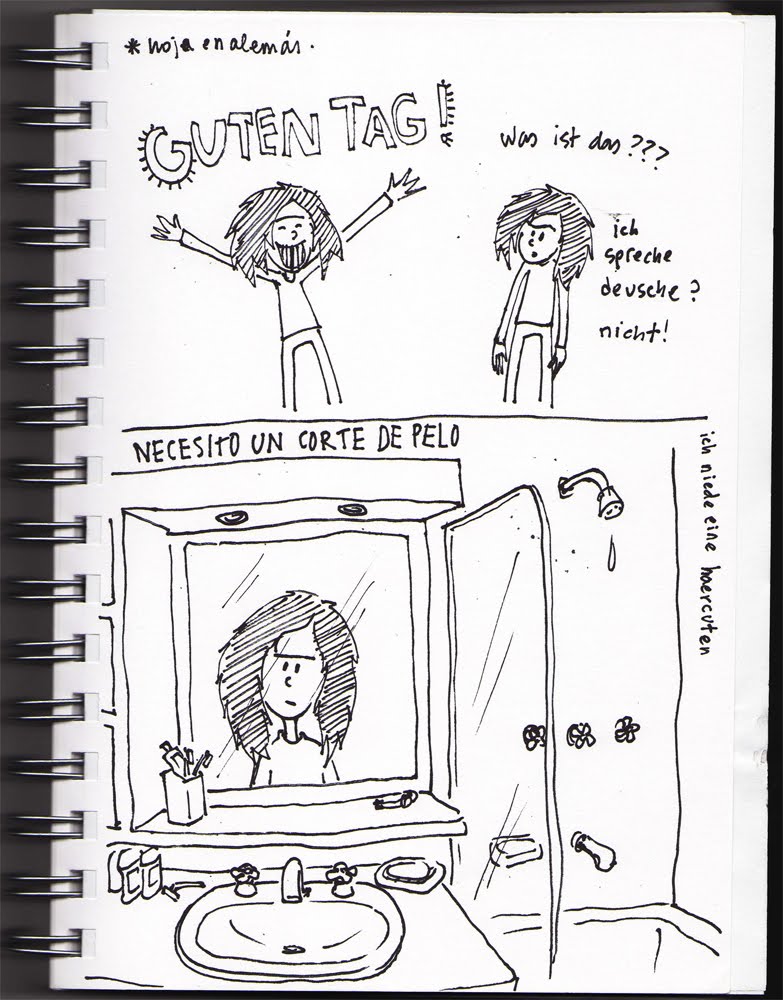 * hoja en alemán.
GUTEN TAG!
was ist das???
ich
spreche
deusche?
nicht!
NECESITO UN CORTE DE PELO
ich niede eine haercuten